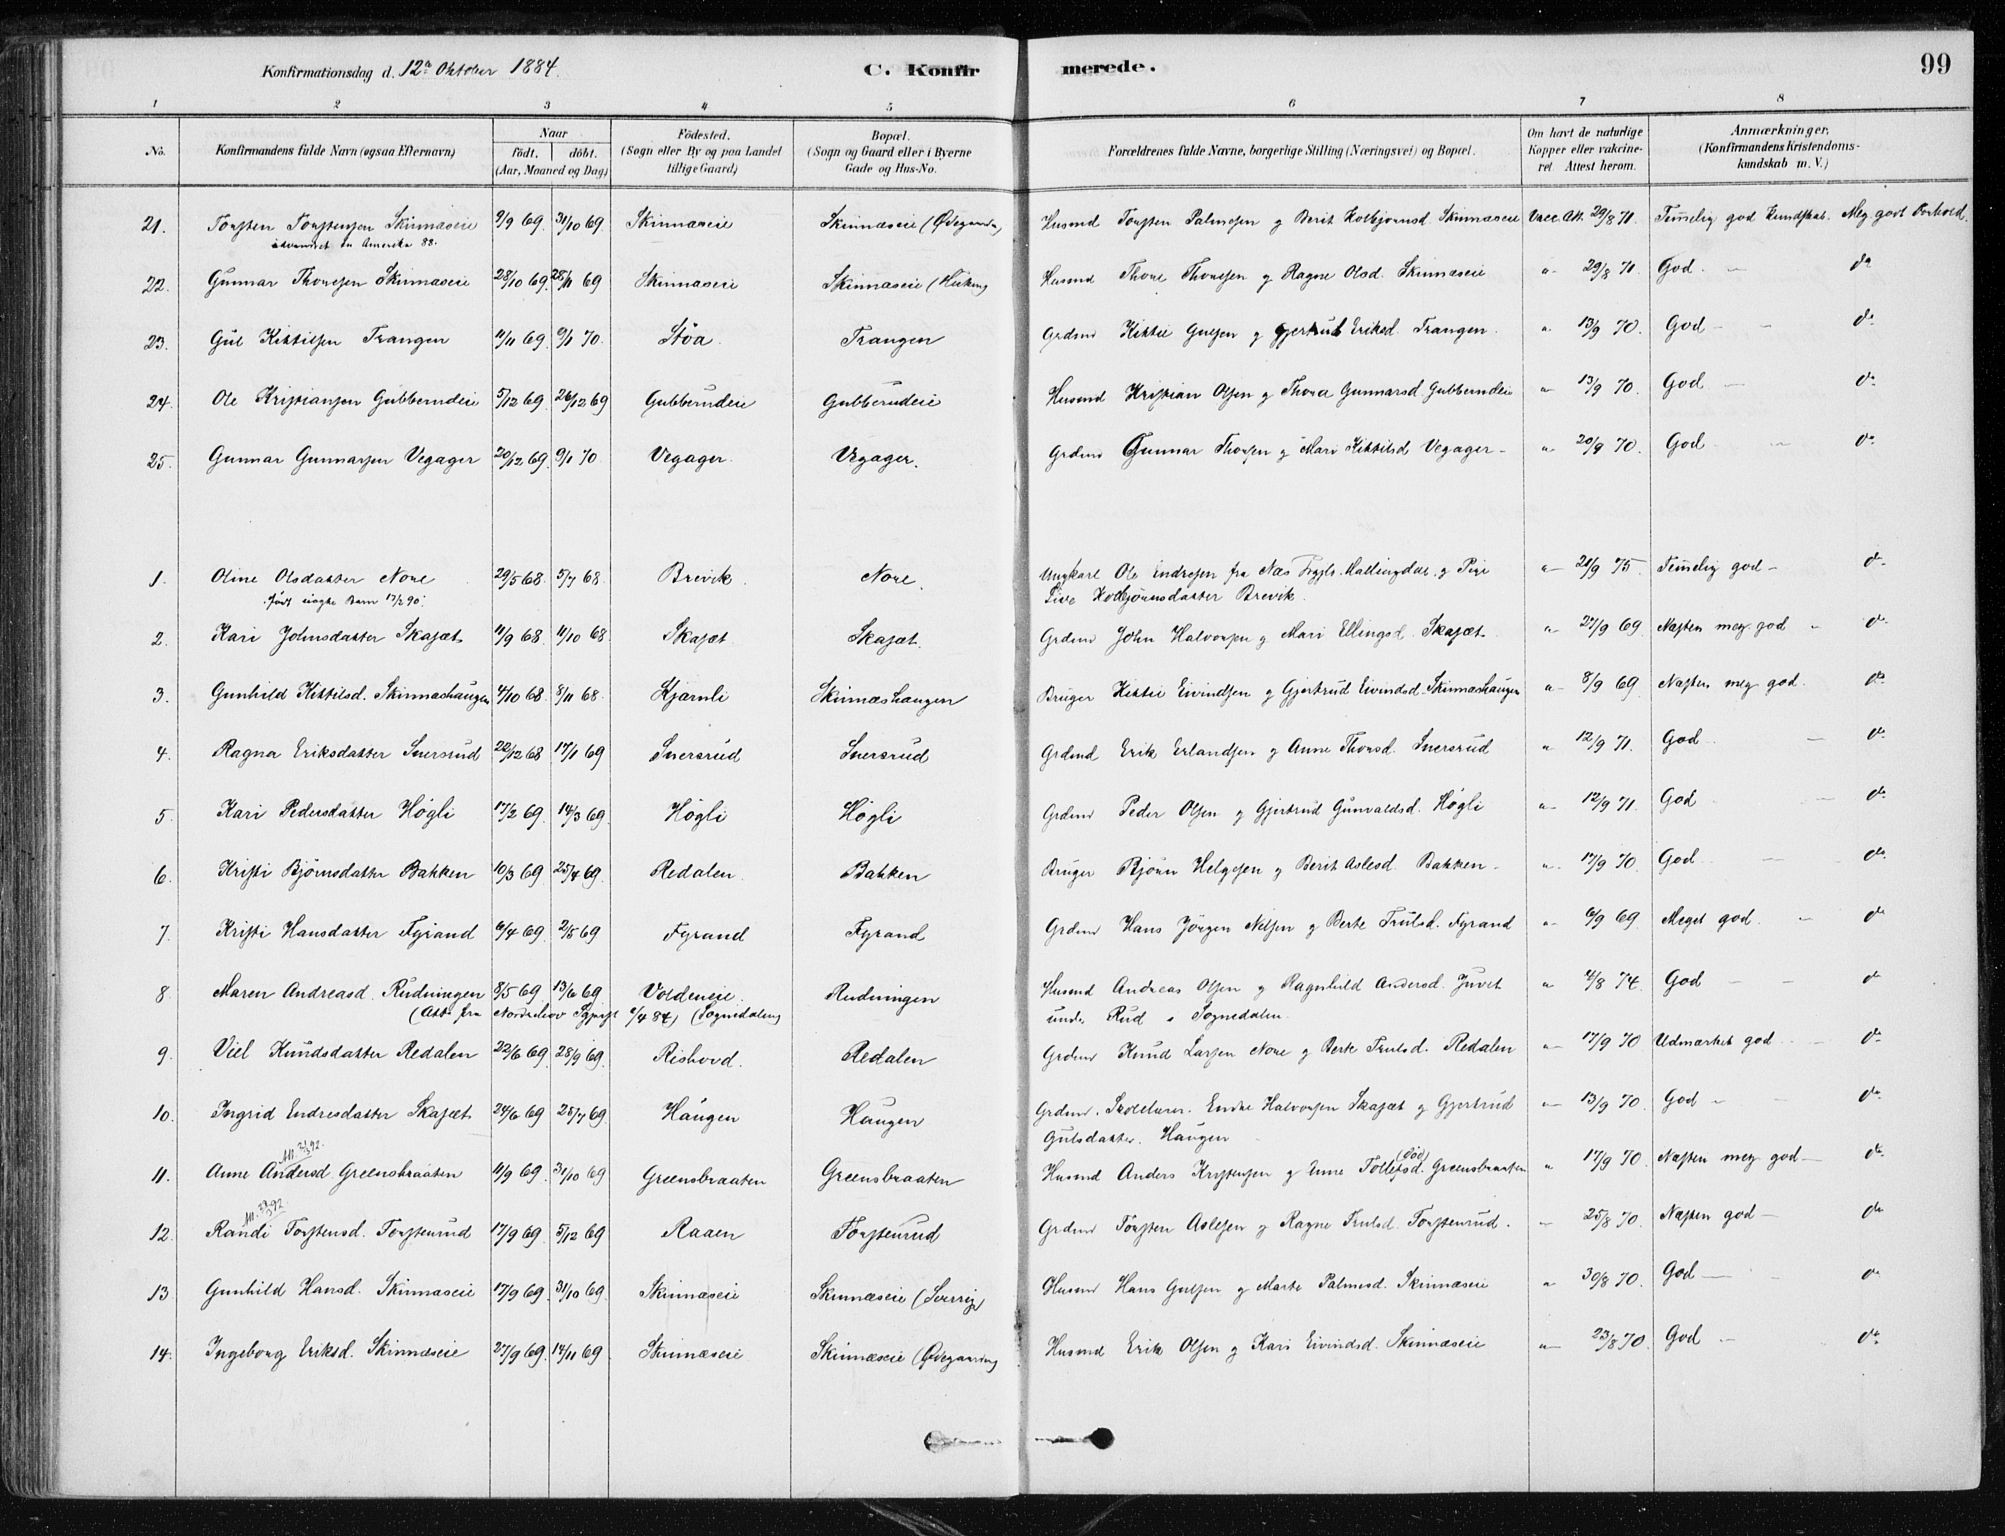 Konfirmationsdag d. 12te Oktober 1884. C. Konfir merede. 99
1 2 3 4 5 6 7 8
No. Konfirmandens fulde Navn (ogsaa Efternavn) Naar födt. döbt. (Aar, Maaned og Dag) Födested. (Sogn eller By og paa Landet tillige Gaard) Bopæl. (Sogn og Gaard eller i Byerne Gade og Hus-No. Forældrenes fulde Navne, borgerlige Stilling (Næringsvei) og Bopæl. Om havt de naturlige Kopper eller vakcineret. Attest herom. Anmærkninger, (Konfirmandens Kristendomskundskab m. V.)
21. Torsten Torstensen Skinnæseie 9/9 69. 31/10 69 Skinnæseie Skinnæseie Husmd Torsten Palmesen og Berit Kolbjørnsd. Skinnæseie Vacc. Att. 29/8 71. Temelig god Kundskab. Meg. godt Forhold.
Amerika 88.
22. Gunnar Thoresen Skinnæseie 28/10 69. 28/11 69 Skinnæseie Skinnæseie Husmd Thore Thoresen og Ragne Olsd. Skinnæseie " 29/8 71. God. — do
23. Gul Kittilsen Trangen 11/11 69. 9/1 70. Støa Trangen Grdmd Kittil Gulsen og Gjertrud Eriksd Trangen. " 13/9 70. God — do
24. Ole Kristiansen Gubberudeie 5/12 69. 26/12 69 Gubberudeie Gubberudeie Husmd Kristian Olsen og Thora Gunnarsd Gubberudeie " 13/9 70. God — do
25. Gunnar Gunnarsen Vegager 20/12 69. 9/1 70 Vegager Vegager. Grdmd Gunnar Thorsen og Mari Kittilsd Vegager " 20/9 70. God — do
1. Oline Olsdatter Nore 29/5 68. 5/7 68. Brevik. Nore. Ungkarl Ole Endresen fra Næs Hallingdal og Pige " 21/9 75. Temelig god — do
født uægte Barn 17/2 90. Kolbjørnsdatter Brevik.
2. Kari Johnsdatter Skajæt 11/9 68 11/10 68. Skajæt Skajæt. Grdmd John Halvorsen og Mari Ellingsd. Skajæt " 27/9 69 Næsten meg god — do
3. Gunhild Kittilsd. Skinnæshaugen 4/10 68. 8/11 68. Kjærnli Skinnæshaugen Bruger Kittil Eivindsen og Gjertrud Eivindsd. Skinnæshaugen " 8/9 69 Næsten meg god. do
4. Ragna Eriksdatter Snersrud 22/12 68 17/1 69 Snersrud Snersrud Grdmd Erik Erlandsen og Anne Thorsd. Snersrud " 12/9 71. God — do
5. Kari Pedersdatter Høgli 17/2 69. 14/3 69. Høgli Høgli Grdmd Peder Olsen og Gjertrud Gunvaldsd. Høgli " 12/9 71. God — do
6. Kristi Bjørnsdatter Bakken 10/3 69 25/4 69. Redalen. Bakken Bruger Bjørn Helgesen og Berit Aslesd. Bakken " 17/9 70. God — do
7. Kristi Hansdatter Fyrand 6/4 69. 2/5 69 Fyrand Fyrand Grdmd Hans Jörgen Nilsen og Berte Trulsd. Fyrand " 6/9 69 Meget god. — do
8. Maren Andreasd. Rudningen 8/5 69. 13/6 69 Voldeneie. Rudningen Husmd Andreas Olsen og Ragnhild Andersd. Juvet " 4/8 74. God — do
(Att. fra Norderhov 84) (Sognedalen) under Rud i Sognedalen
9. Viel Knudsdatter Redalen 22/6 69. 28/9 69. Rishovd. Redalen Grdmd Knud Larsen Nore og Berte Trulsd. Redalen " 17/9 70 Udmærket god — do
10. Ingrid Endresdatter Skajæt 24/6 69 25/7 69. Haugen Haugen Grdmd. Skolelærer. Endre Halvorsen Skajæt og Gjertrud " 13/9 70. God — do
Gulsdatter. Haugen
11. Anne Andersd Greensbraaten 11/9 69. 31/10 69 Greensbraaten Greensbraaten Husmd Anders Kristensen og Anne Tollefsd. (död) Greensbraaten " 17/9 70. Næsten meg god — do
12. Randi Torstensd. Torstenrud 17/9 69. 5/12 69 Raaen Torstenrud Grdmd Torsten Aslesen og Ragne Trulsd. Torstenrud. " 25/8 70. Næsten god — do
13. Gunhild Hansd. Skinnæseie 17/9 69. 31/10 69 Skinnæseie Skinnæseie (Sverrig) Husmd Hans Gulsen og Marte Palmesd. Skinnæseie " 30/8 70. God — do
14. Ingeborg Eriksd. Skinnæseie 27/9 69. 14/11 69. Skinnæseie Skinnæseie Husmd Erik Olsen og Kari Eivindsd. Skinnæseie " 23/8 70. God — do